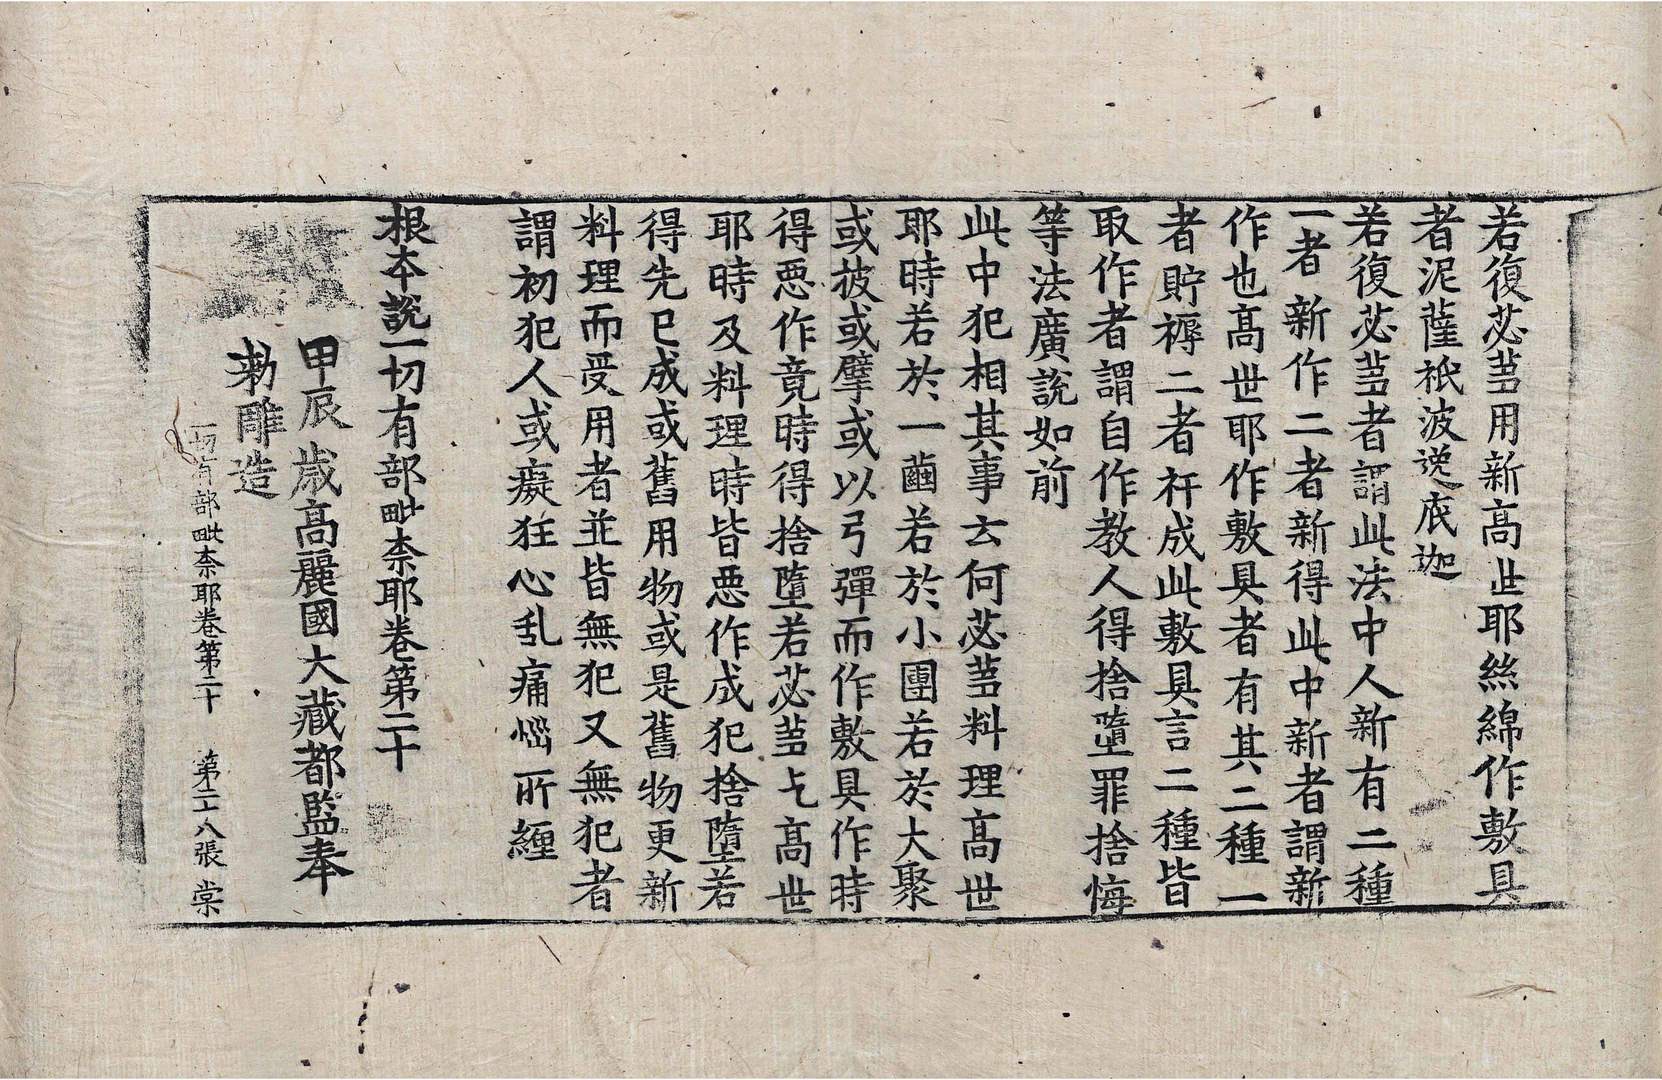 若復苾芻用新高世耶絲綿作敷具
者泥薩祇波逸底迦
若復苾芻者謂此法中人新有二種
一者新作二者新得此中新者謂新
作也高世耶作敷具者有其二種一
者貯褥二者杆成此敷具言二種皆
取作者謂自作教人得捨墮罪捨悔
等法廣說如前
此中犯相其事云何苾芻料理高世
耶時若於一繭若於小團若於大聚
或披或擘或以弓彈而作敷具作時
得惡作竟時得捨墮若苾芻乞高世
耶時及料理時皆惡作成犯捨墮若
得先已成或舊用物或是舊物更新
料理而受用者並皆無犯又無犯者
謂初犯人或癡狂心乱痛惱所纏
根本說一切有部毗柰耶卷第二十
甲辰歲高麗國大藏都監奉
勑雕造
一切有部毗柰耶卷第二十 第二十八張 棠